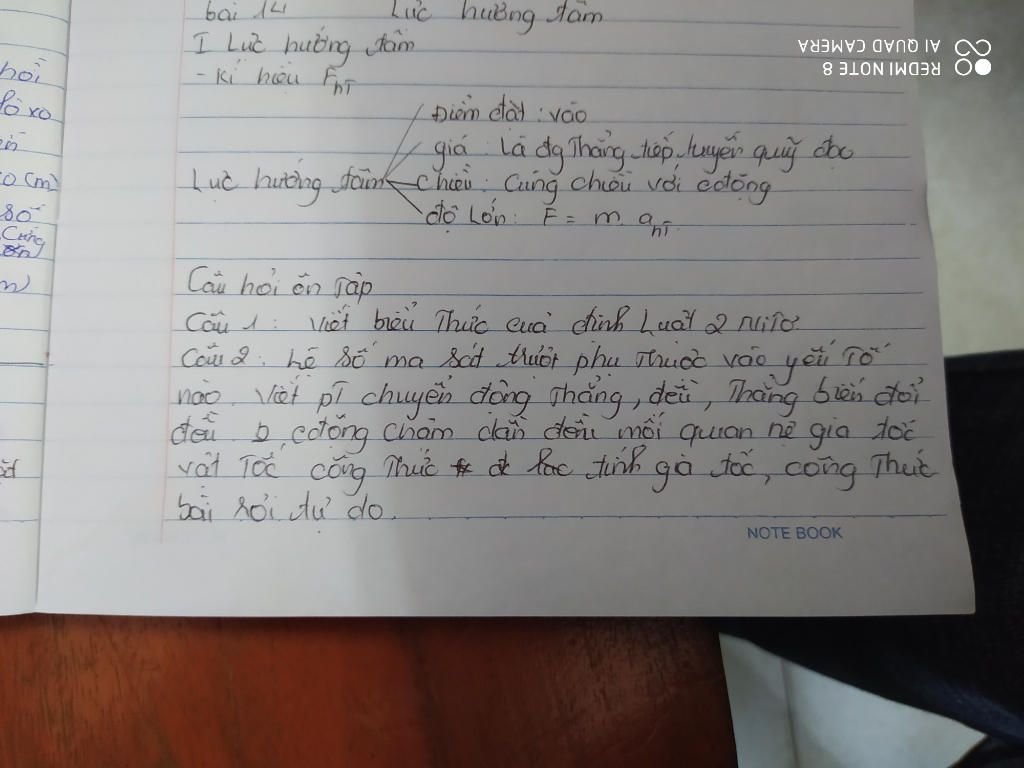 bài 14 Lực hướng tâm
I Lực hướng tâm
- Kí hiệu F hT
Điểm đặt : vào
giá : Là đg Thẳng tiếp tuyến quỹ đạo
Lực hướng tâm chiều : Cùng chiều với cđộng
độ Lớn : F = m. a hT
Câu hỏi ôn Tập
Câu 1 : Viết biểu Thức của định Luật 2 NiTơ
Câu 2 : hệ số ma sát trượt phụ Thuộc vào yếu Tố
nào. Viết pT chuyển động Thẳng, đều, Thẳng biến đổi
đều, cđộng chậm dần đều mối quan hệ gia tốc
vật Tốc công Thức tính gia tốc, công Thức
bài rơi tự do.
hồi
lò xo
(m)
số
Cứng
NOTE BOOK
REDMI NOTE 8
AI QUAD CAMERA